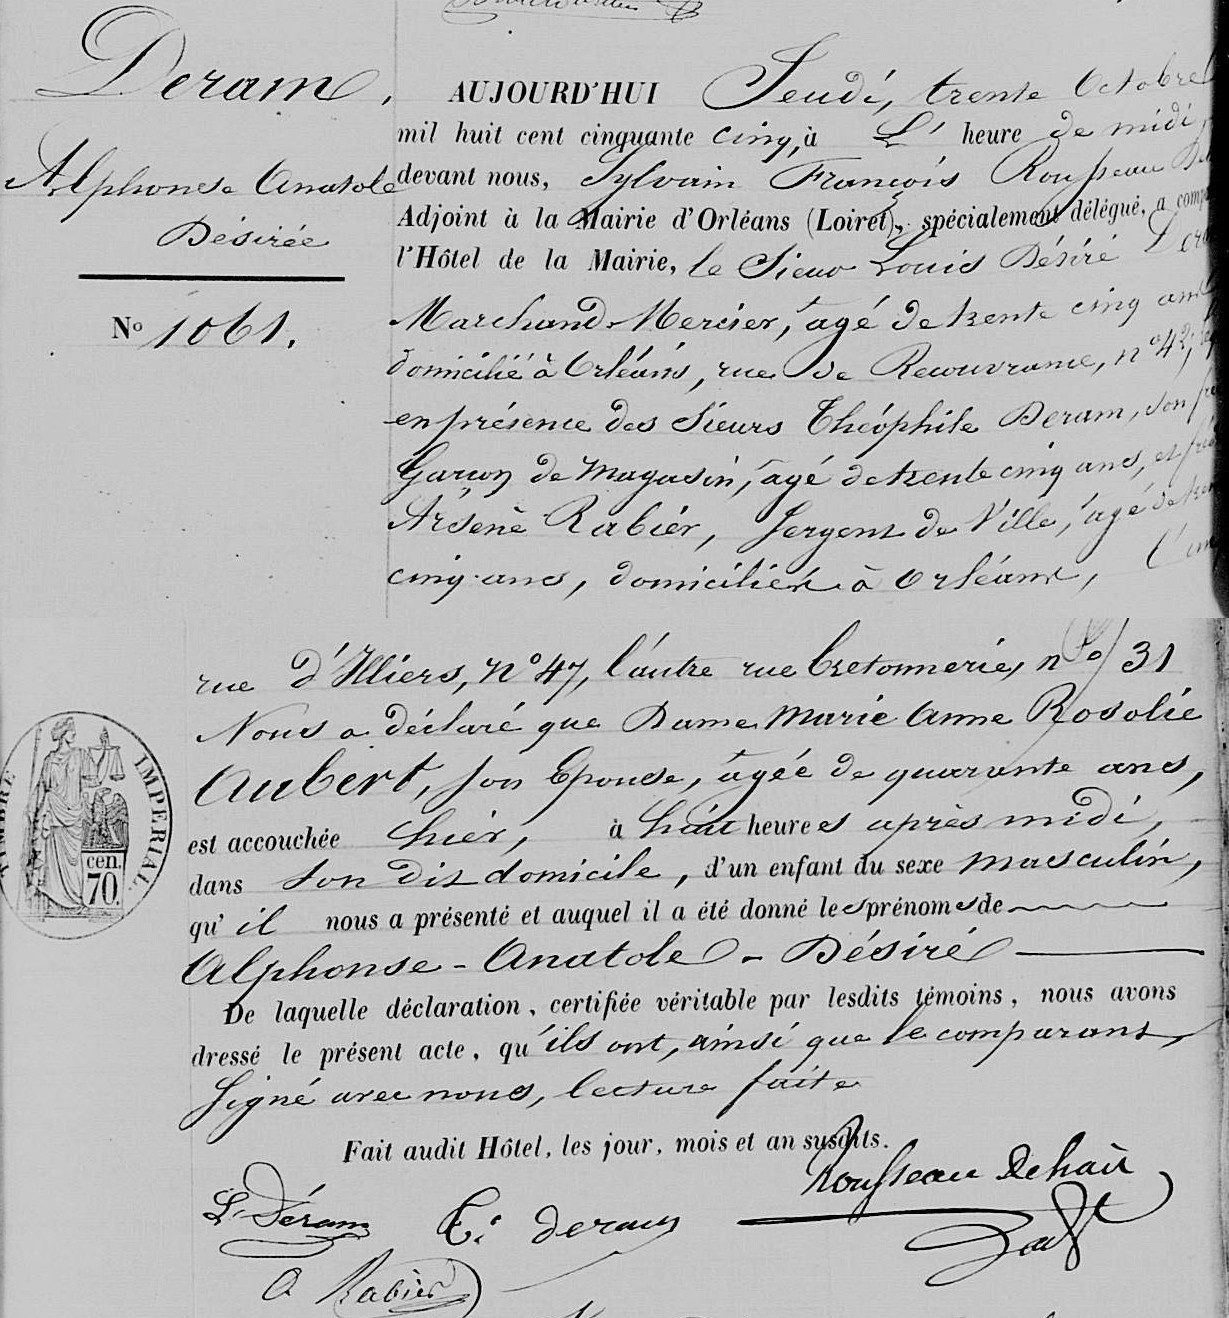 Deram,
Alphonse Anatole
Désirée
No 1061.
AUJOURD'HUI Jeudi, trente Octobre
mil huit cent cinquante cinq, à L' heure de midi
devant nous, Sylvain François Rousseau
Adjoint à la Mairie d'Orléans (Loiret), spécialement délégué, a comp
l'Hôtel de la Mairie, le Sieur Louis Désiré Der
Marchand Mercier, âgé de trente cinq ans
domicilié à Orléans, rue de Recouvrance, no 42,
en présence des Sieurs Théophile Deram, son
Garçon de Magasin, âgé de trente cinq ans, et
Arsène Rabier, Sergent de Ville, âgé de
cinq ans, domiciliés à Orléans, l'un
rue d'Illiers, No 47, l'autre rue Bretonnerie, no 31
Nous a déclaré que Dame Marie Anne Rosalie
Aubert, son Epouse, âgée de quarante ans,
est accouchée hier, à huit heures après midi,
dans son dit domicile, d'un enfant du sexe masculin,
qu'il nous a présenté et auquel il a été donné les prénoms de
Alphonse - Anatole - Désiré
De laquelle déclaration, certifiée véritable par lesdits témoins, nous avons
dressé le présent acte, qu'ils ont, ainsi que le comparant,
Signé avec nous, lecture faite
Fait audit Hôtel, les jour, mois et an susdits.
Rousseau Dehais
L. Déram T. deram
adjt
A Rabier
TIMBRE IMPERIAL.
70 cen.